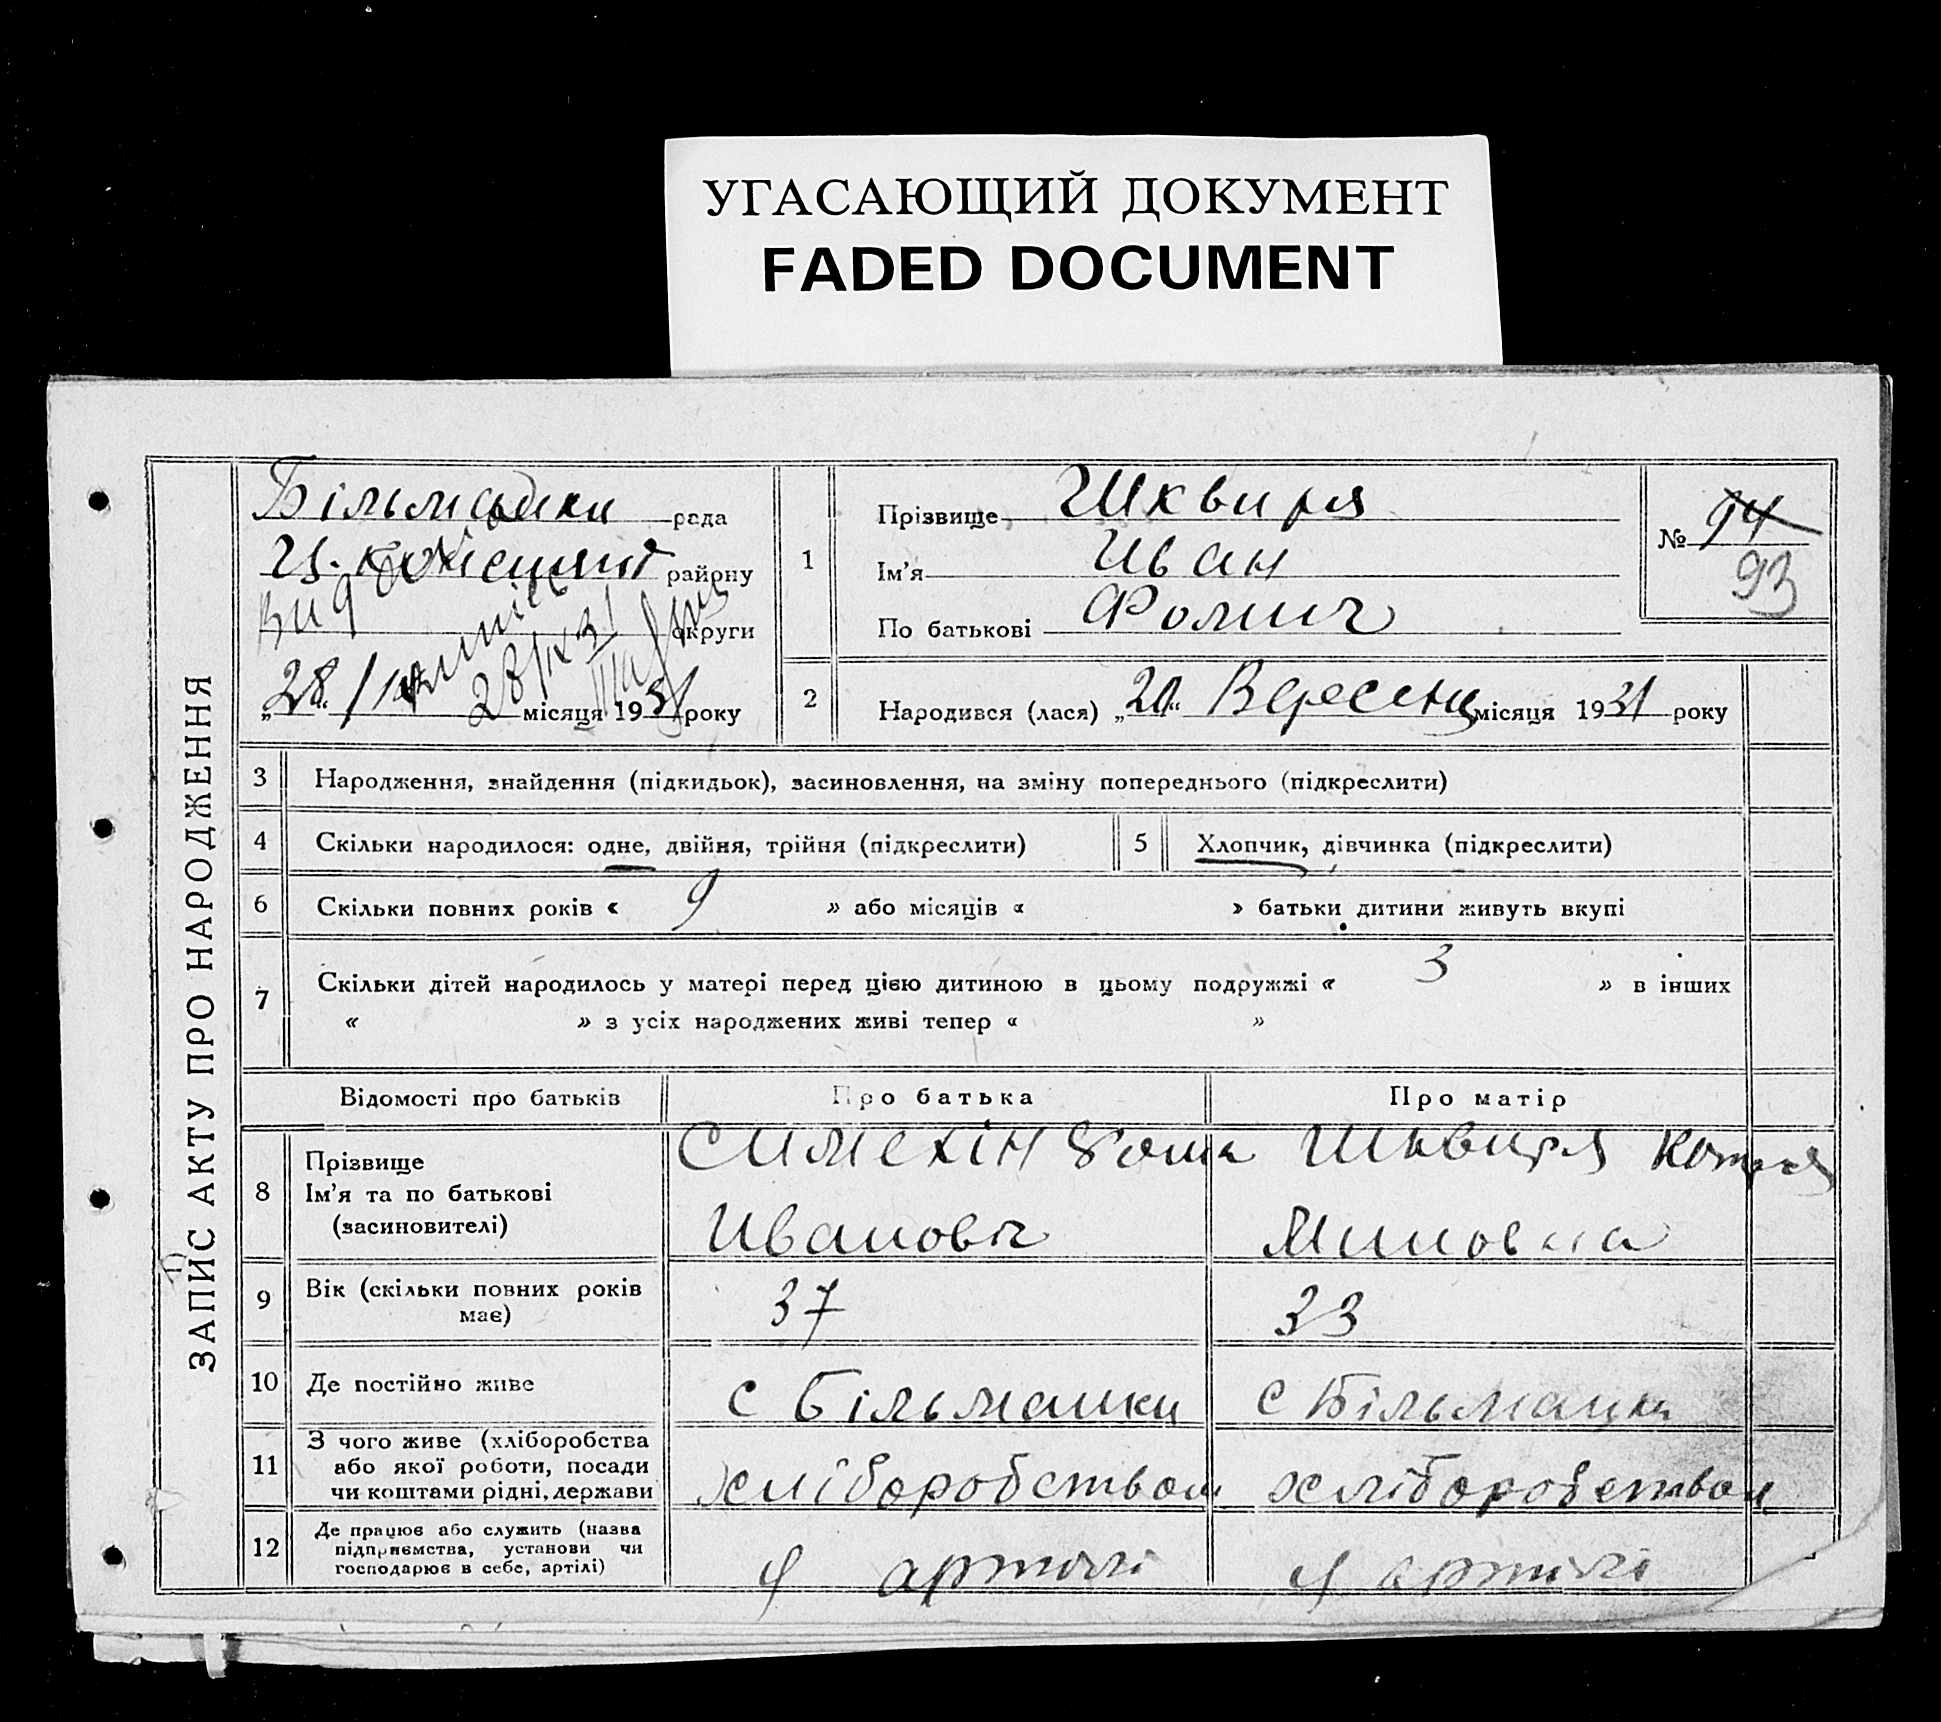 УГАСАЮЩИЙ ДОКУМЕНТ
FADED DOCUMENT
ЗАПИС АКТУ ПРО НАРОДЖЕННЯ
рада
району
округи
„28“ місяця 1931 року
1
Прізвище Шквиря
Ім'я Иван
По батькові Фомич
№ 94
93
2
Народився (лася) „20“ Вересня місяця 1931 року
3 Народження, знайдення (підкидьок), засиновлення, на зміну попереднього (підкреслити)
4 Скільки народилося: одне, двійня, трійня (підкреслити) 5 Хлопчик, дівчинка (підкреслити)
6 Скільки повних років « 9 » або місяців « » батьки дитини живуть вкупі
7 Скільки дітей народилось у матері перед цією дитиною в цьому подружжі « 3 » в інших
« » з усіх народжених живі тепер « »
Відомості про батьків Про батька Про матір
8 Прізвище
Ім'я та по батькові
(засиновителі)
Симехін Фома
Иванович
Шквиря
Миновна
9 Вік (скільки повних років
має)
37 33
10 Де постійно живе с Більмачки с Більмачки
11 З чого живе (хліборобства
або якої роботи, посади
чи коштами рідні, держави
хліборобством хліборобством
12 Де працює або служить (назва
підприємства, установи чи
господарює в себе, артілі)
у артілі у артілі